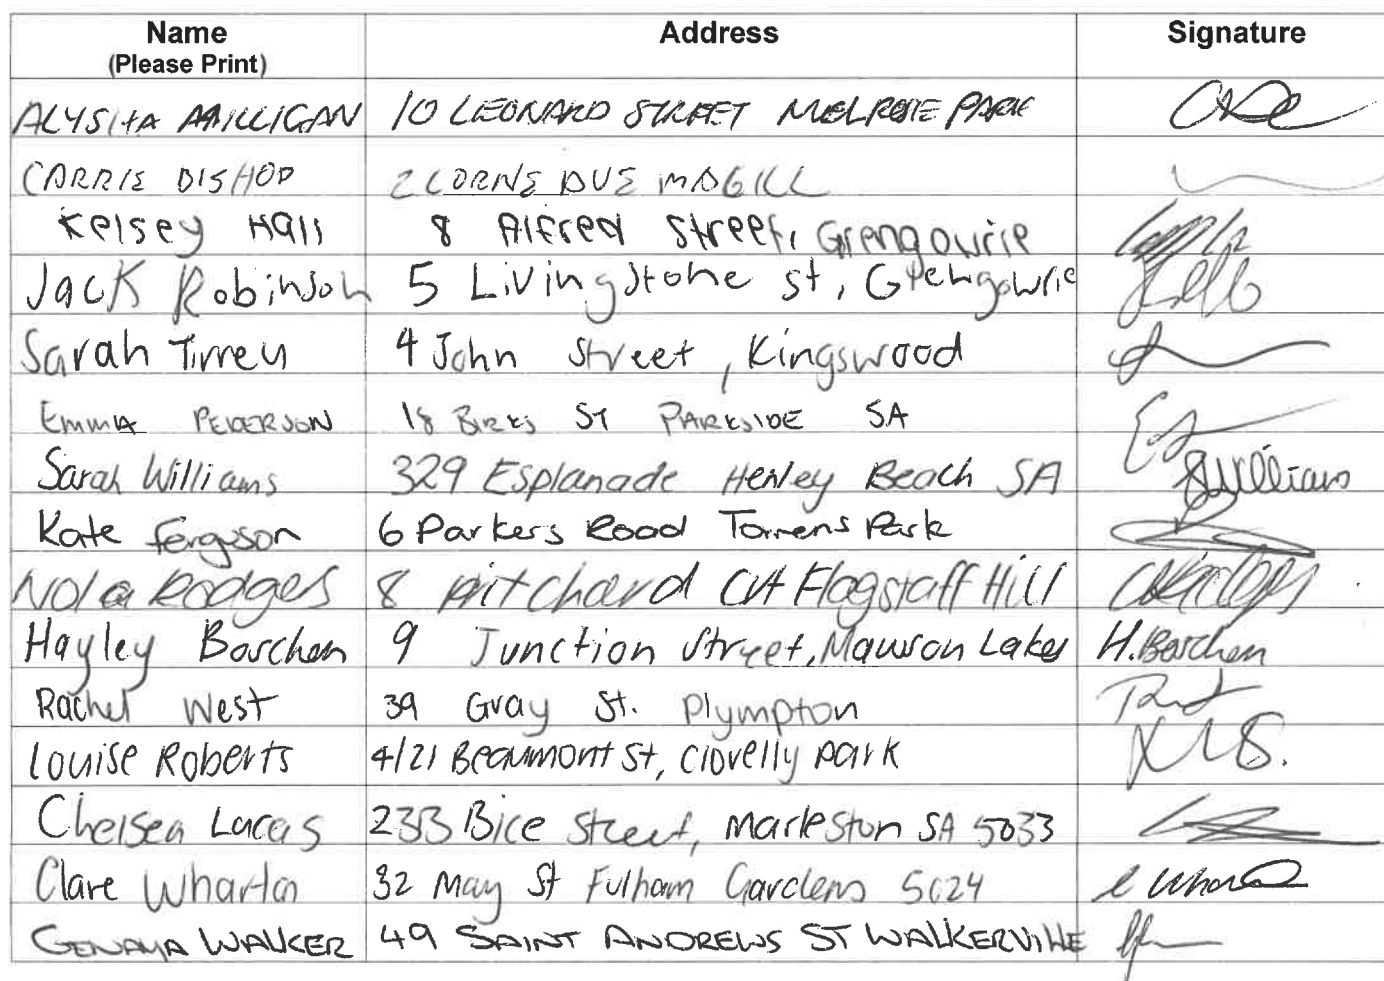 Name Address Signature
(Please Print)
ALYSHA MILLIGAN 10 LEONARD STREET MELROSE PARK
CARRIE BISHOP 2 LORNE AVE MAGILL
Kelsey Hall 8 Alfred Street, Glengowrie
Jack Robinson 5 Livingstone st, Glengowrie
Sarah Tirrell 4 John Street, Kingswood
Emma PEDERSON 18 Birks ST PARKSIDE SA
Sarah Williams 329 Esplanade Henley Beach SA SWilliams
Kate Ferguson 6 Parkers Road Torrens Park
Nola Rodgers 8 Pritchard Crt Flagstaff Hill
Hayley Borchen 9 Junction Street, Mawson Lakes H.Borchen
Rachel West 39 Gray St. Plympton
Louise Roberts 4/21 Beaumont St, Clovelly Park
Chelsea Lucas 233 Bice Street, Marleston SA 5033
Clare Wharton 32 May St Fulham Gardens 5024
GENAYA WALKER 49 SAINT ANDREWS ST WALKERVILLE